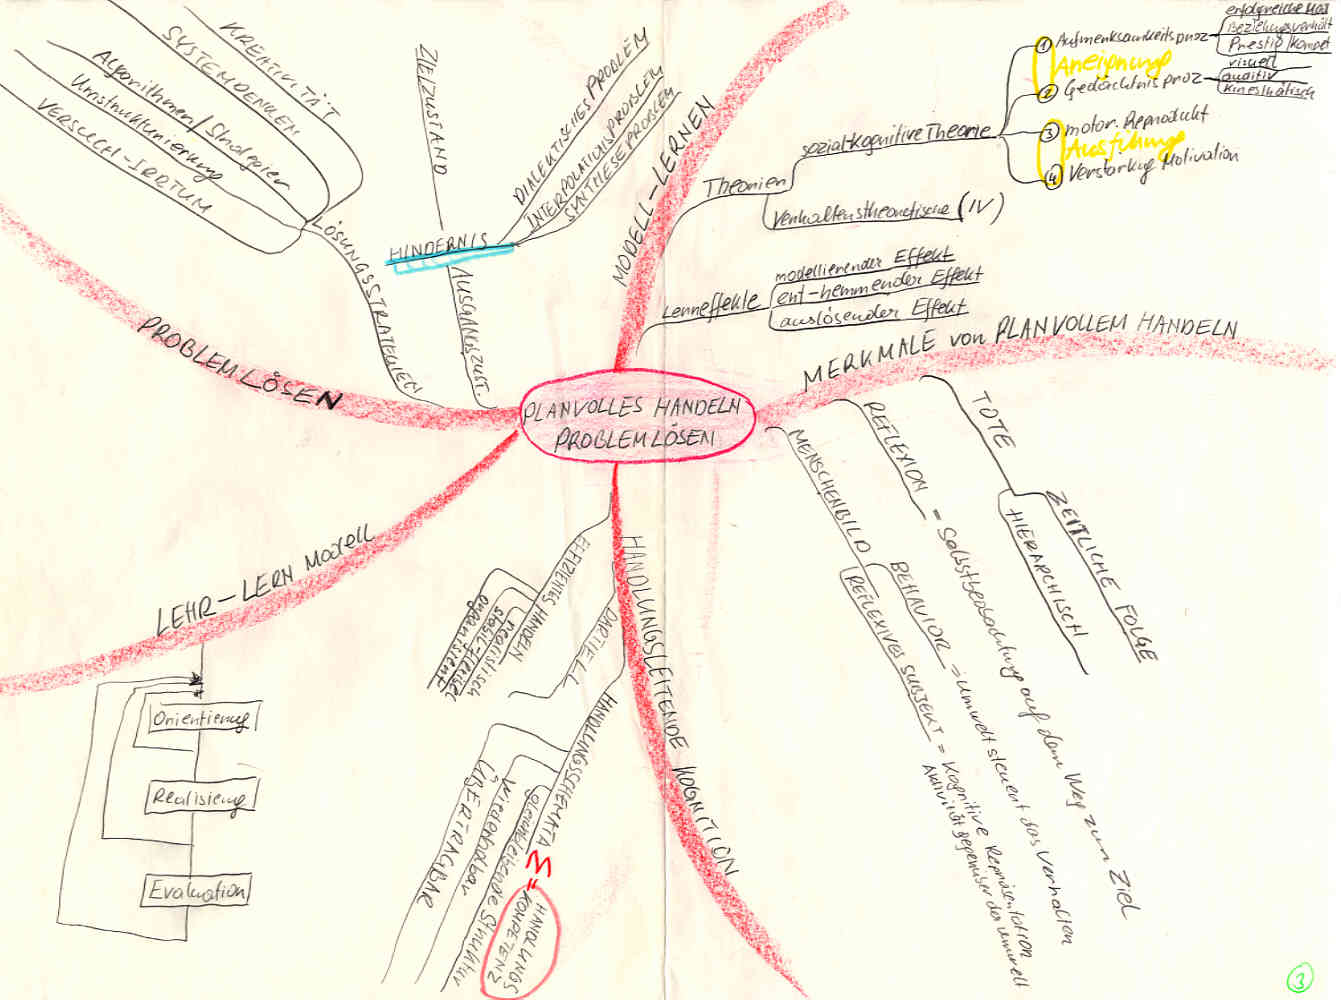 PLANVOLLES HANDELN
PROBLEMLÖSEN
MODELL-LERNEN
Theorien
sozial-kognitive Theorie
① Aufmerksamkeitsproz
erfolgreiche Mod
Beziehungsverhält
Prestig/Kompet
Aneignung
② Gedächtnisproz
visuell
auditiv
kinesthätisch
③ motor. Reprodukt
Ausführung
④ Verstärkug Motivation
Verhaltenstheoretische (IV)
Lerneffekte
modellierender Effekt
ent-hemmender Effekt
auslösender Effekt
MERKMALE von PLANVOLLEM HANDELN
TOTE
ZEITLICHE FOLGE
HIERARCHISCH
REFLEXION = Selbstbeobachtung auf dem Weg zum Ziel
MENSCHENBILD
BEHAVIOR = Umwelt steuert das Verhalten
REFLEXIVES SUBJEKT = Kognitive Repräsentation
Aktivität gegenüber der Umwelt
HANDLUNGSLEITENDE KOGNITION
EFFIZIENTES HANDELN
realistisch
stabil-flexibel
organisiert
PARTIELL
HANDLUNGSSCHEMATA
gleichbleibende Struktur
wiederholbar
ÜBERTRAGBAR
= HANDLUNGS
KOMPETENZ
LEHR-LERN Modell
Orientierung
Realisierug
Evaluation
PROBLEMLÖSEN
LÖSUNGSSTRATEGIEN
KREATIVITÄT
SYSTEMDENKEN
Algorithmen/Strategien
Umstrukturierung
VERSUCH-IRRTUM
ZIELZUSTAND
HINDERNIS
AUSGANGSZUST.
DIALEKTISCHES PROBLEM
INTERPOLATIONSPROBLEM
SYNTHESEPROBLEM
③